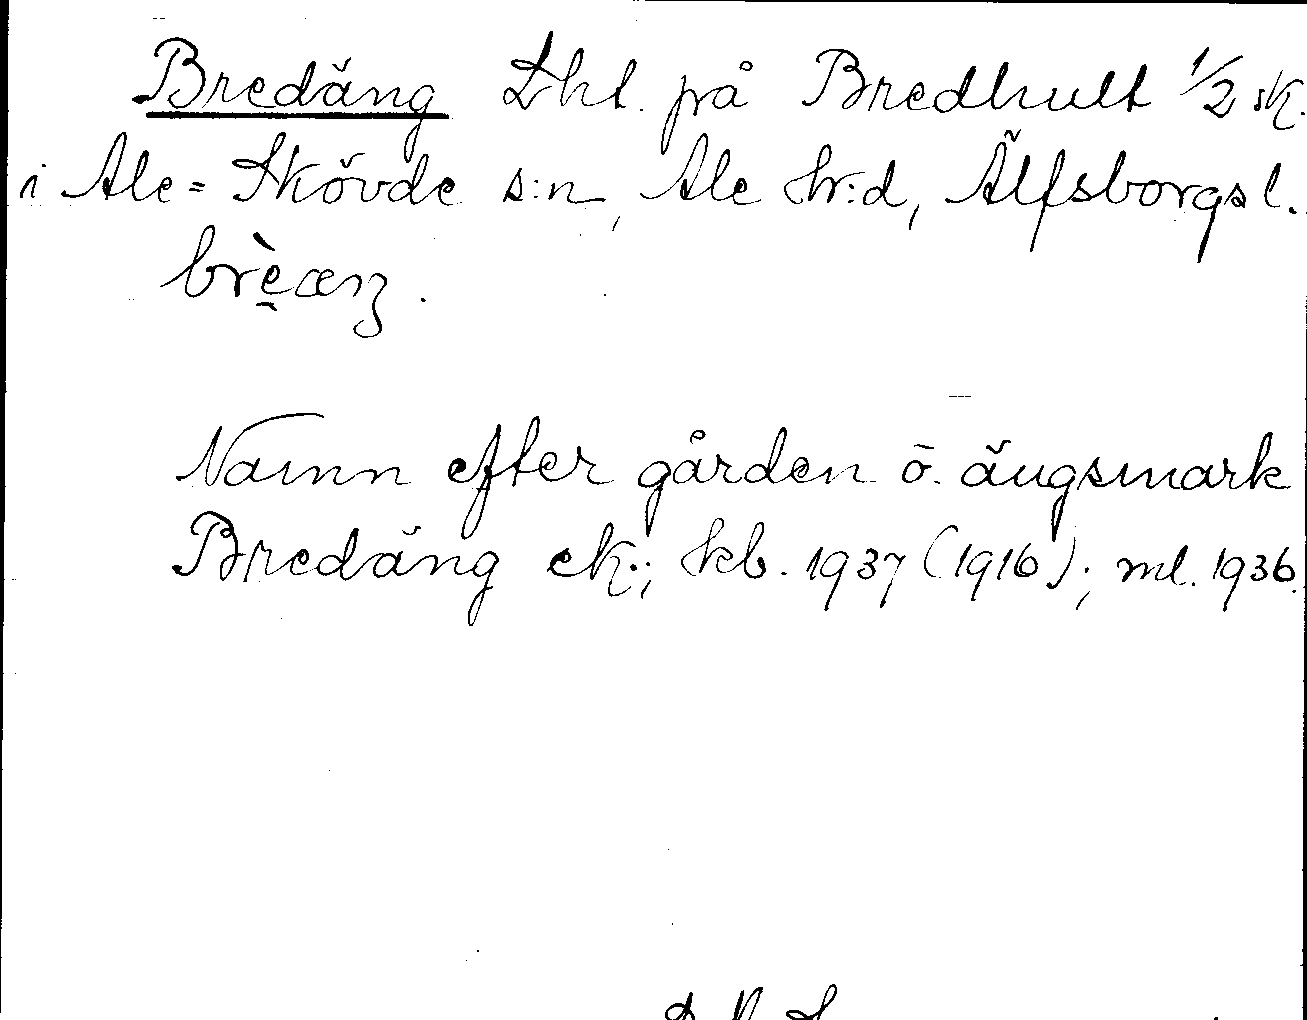 Bredäng Lht. på Bredhult 1/2 sk.
i Ale=Skövde s:n, Ale hr:d, Älfsborgs l.
Namn efter gården o. ängsmark
Bredäng ek.; kb. 1937 (1916); ml. 1936.